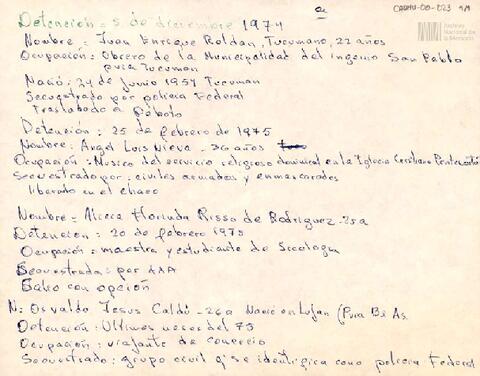 CADHU-00-023 9/1
Archivo Nacional de la Memoria
Detención = 5 de diciembre 1974
Nombre = Juan Enrique Roldan, Tucumano, 22 años
Ocupación: Obrero de la Municipalidad del ingenio San Pablo
pvia Tucuman
Nació: 24 de Junio 1954 Tucuman
Secuestrado por policia Federal
Trasladado a
Detención: 25 de febrero de 1975
Nombre: Angel Luis Nieva - 36 años
Ocupación: Musico del servicio religioso dominical en la Iglesia Cristiana
Secuestrado por: civiles armados y enmascarados
liberado en el chaco
Nombre = Alicia Risso de Rodriguez - 25 a
Detencion: 20 de febrero 1975
Ocupación: maestra y estudiante de
Secuestrada: por AAA
Salio con opción
N: Osvaldo Jesus Caldú - 26 a Nació en Lujan (Pvia Bs As.
Detención: Ultimos meses del 75
Ocupación: viajante de comercio
Secuestrado: grupo civil q' se identifica como policia Federal